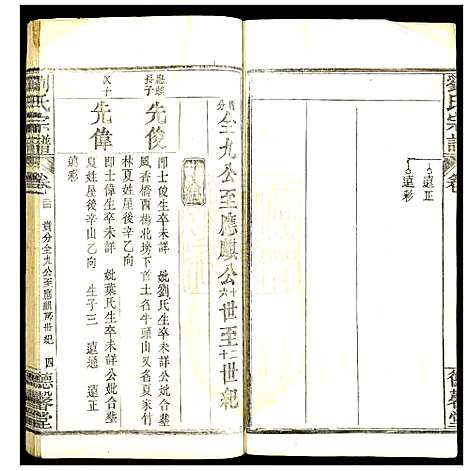 劉氏宗譜
卷
遠正
遠彩
德馨堂
貴分全九公至應麒公十六世至十二世紀
應麒長子
先俊
即士俊生卒未詳 妣劉氏生卒未詳公妣合塟
風香橋酉楊北塝下首土名牛頭山又名夏家竹
林夏姓屋後辛山乙向
次子
先偉
即士偉生卒未詳 妣葉氏生卒未詳公妣合塟
夏姓屋後辛山乙向 生子三 遠通 遠正
遠彩
劉氏宗譜
卷
貴分全九公至應麒公世紀
四
德馨堂